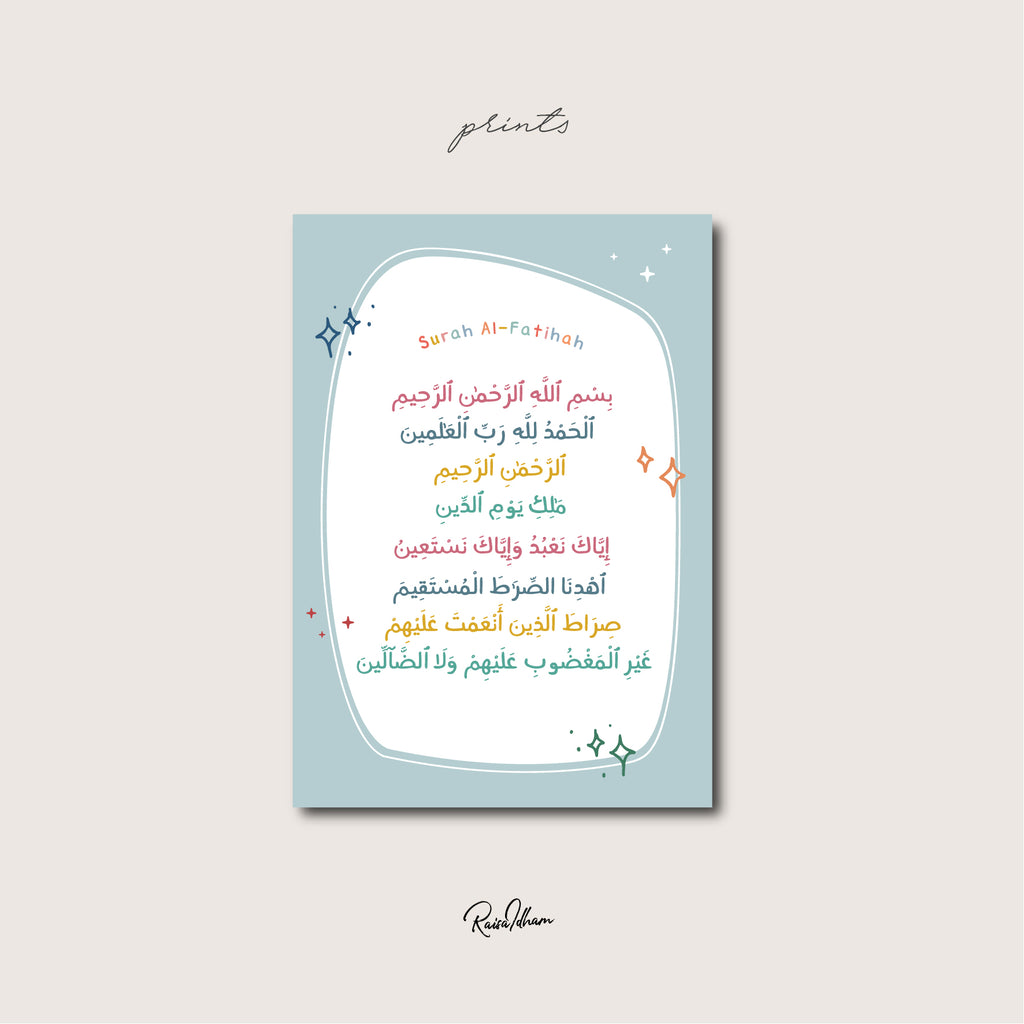 prints
Surah Al-Fatihah
بِسْمِ ٱللَّهِ ٱلرَّحْمَٰنِ ٱلرَّحِيمِ
ٱلْحَمْدُ لِلَّهِ رَبِّ ٱلْعَٰلَمِينَ
ٱلرَّحْمَٰنِ ٱلرَّحِيمِ
مَٰلِكِ يَوْمِ ٱلدِّينِ
إِيَّاكَ نَعْبُدُ وَإِيَّاكَ نَسْتَعِينُ
ٱهْدِنَا الصِّرَٰطَ الْمُسْتَقِيمَ
صِرَاطَ ٱلَّذِينَ أَنْعَمْتَ عَلَيْهِمْ
غَيْرِ ٱلْمَغْضُوبِ عَلَيْهِمْ وَلَا ٱلضَّآلِّينَ
RaisaIdham